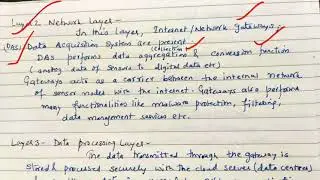 Layer 2 Network Layer :-
In this layer, Internet/Network gateways,
(DAS) Data Acquisition System are present.
DAS performs data aggregation (collection) & conversion function
(analog data of sensors to digital data etc)
Gateways acts as a carrier between the internal network
of sensor nodes with the internet. Gateways also performs
many functionalities like malware protection, filtering,
data management services etc.
Layer 3 - Data processing Layer -
The data transmitted through the gateway is
stored & processed securely with the cloud server (data centres)